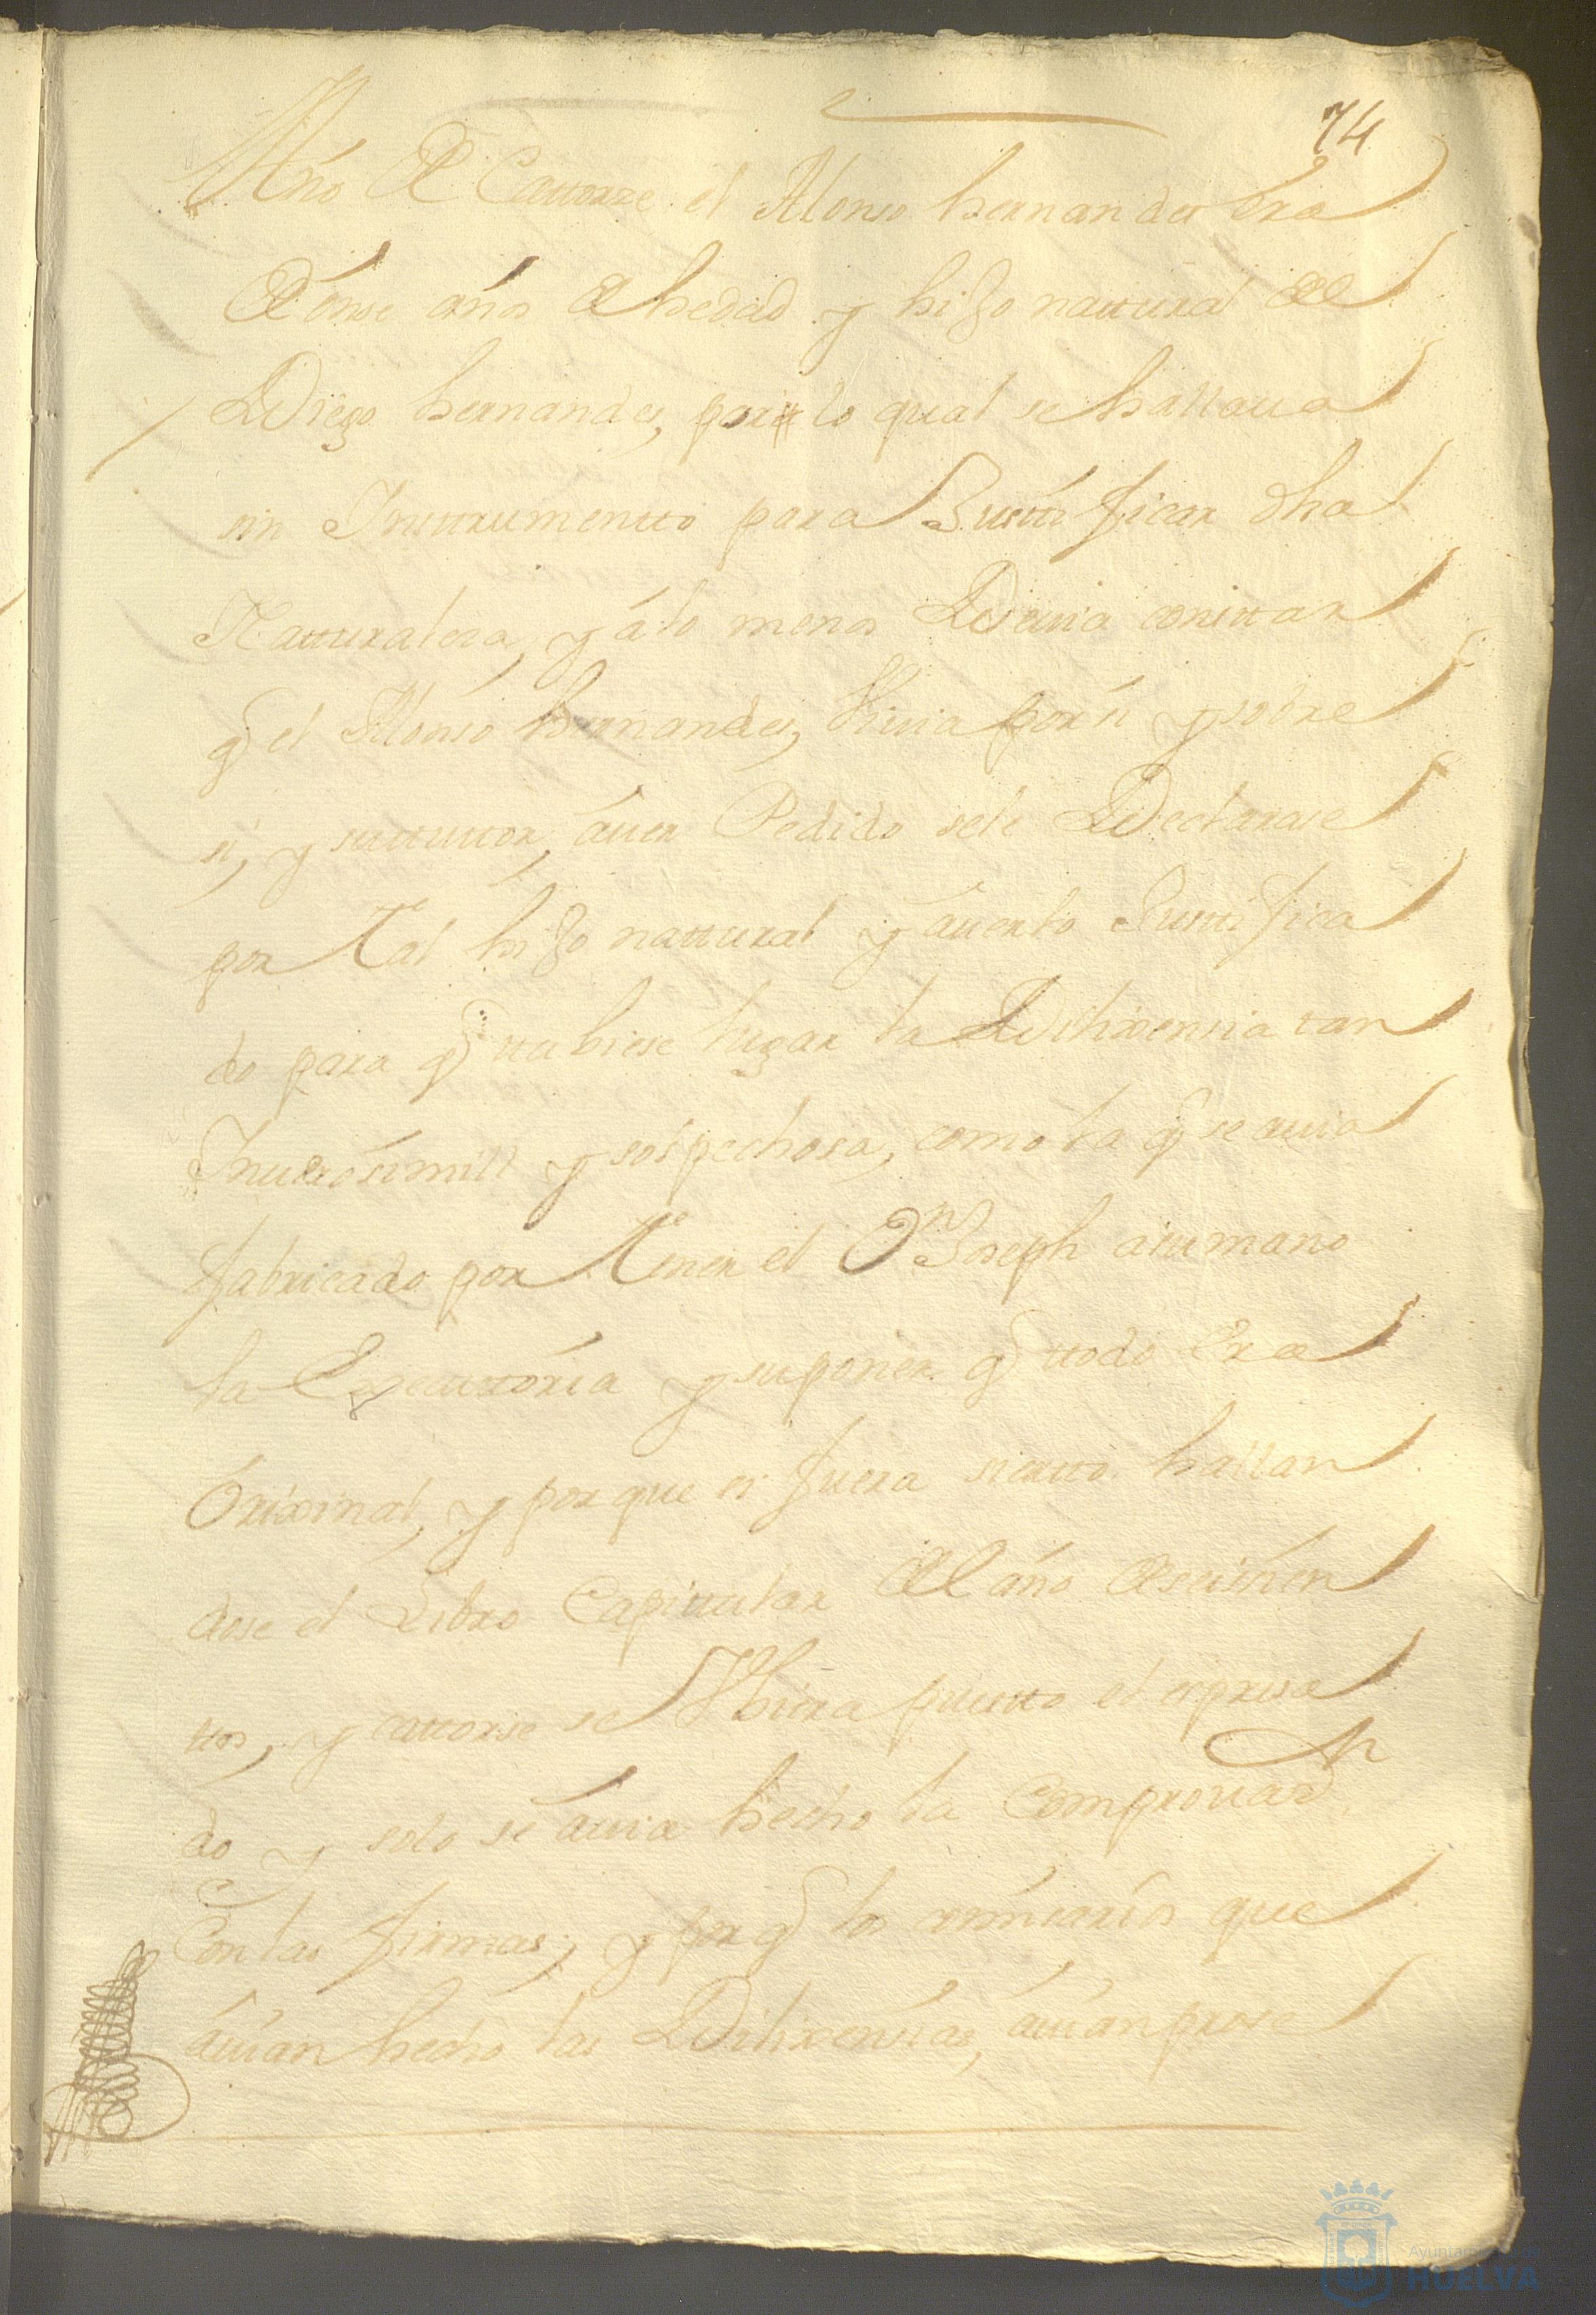 74
Año de Cattorze el Alonso hernandes era
de onse años de hedad y hijo nattural del
Diego hernandes, por lo qual se hallaua
sin Insttrumentto para Justtificar dha
Natturalesa, y a lo menos Deuia consttar
q el Alonso hernandes, Viuia por si y sobre
si, y su tuttor, auer Pedido se le Declarase
por Tal hijo nattural y auerlo Justtifica
do para q ttubiese lugar la Dilixensia tan
Inuerosimill y sospechosa, como la q se auia
fabricado por Tener el Dn Joseph a su mano
la Executtoria y suponer q ttodo Era
Orixinal, y porque si fuera siertto hallan
dose el Libro Capittular del año de seisien
ttos, y cattorse se Vbiera puestto el expresa
do y solo se auia hecho la Comprouaon
Con las firmas, y por q los comisarios que
auian hecho las Dilixensias, auian prose
Ayuntamiento de
HUELVA